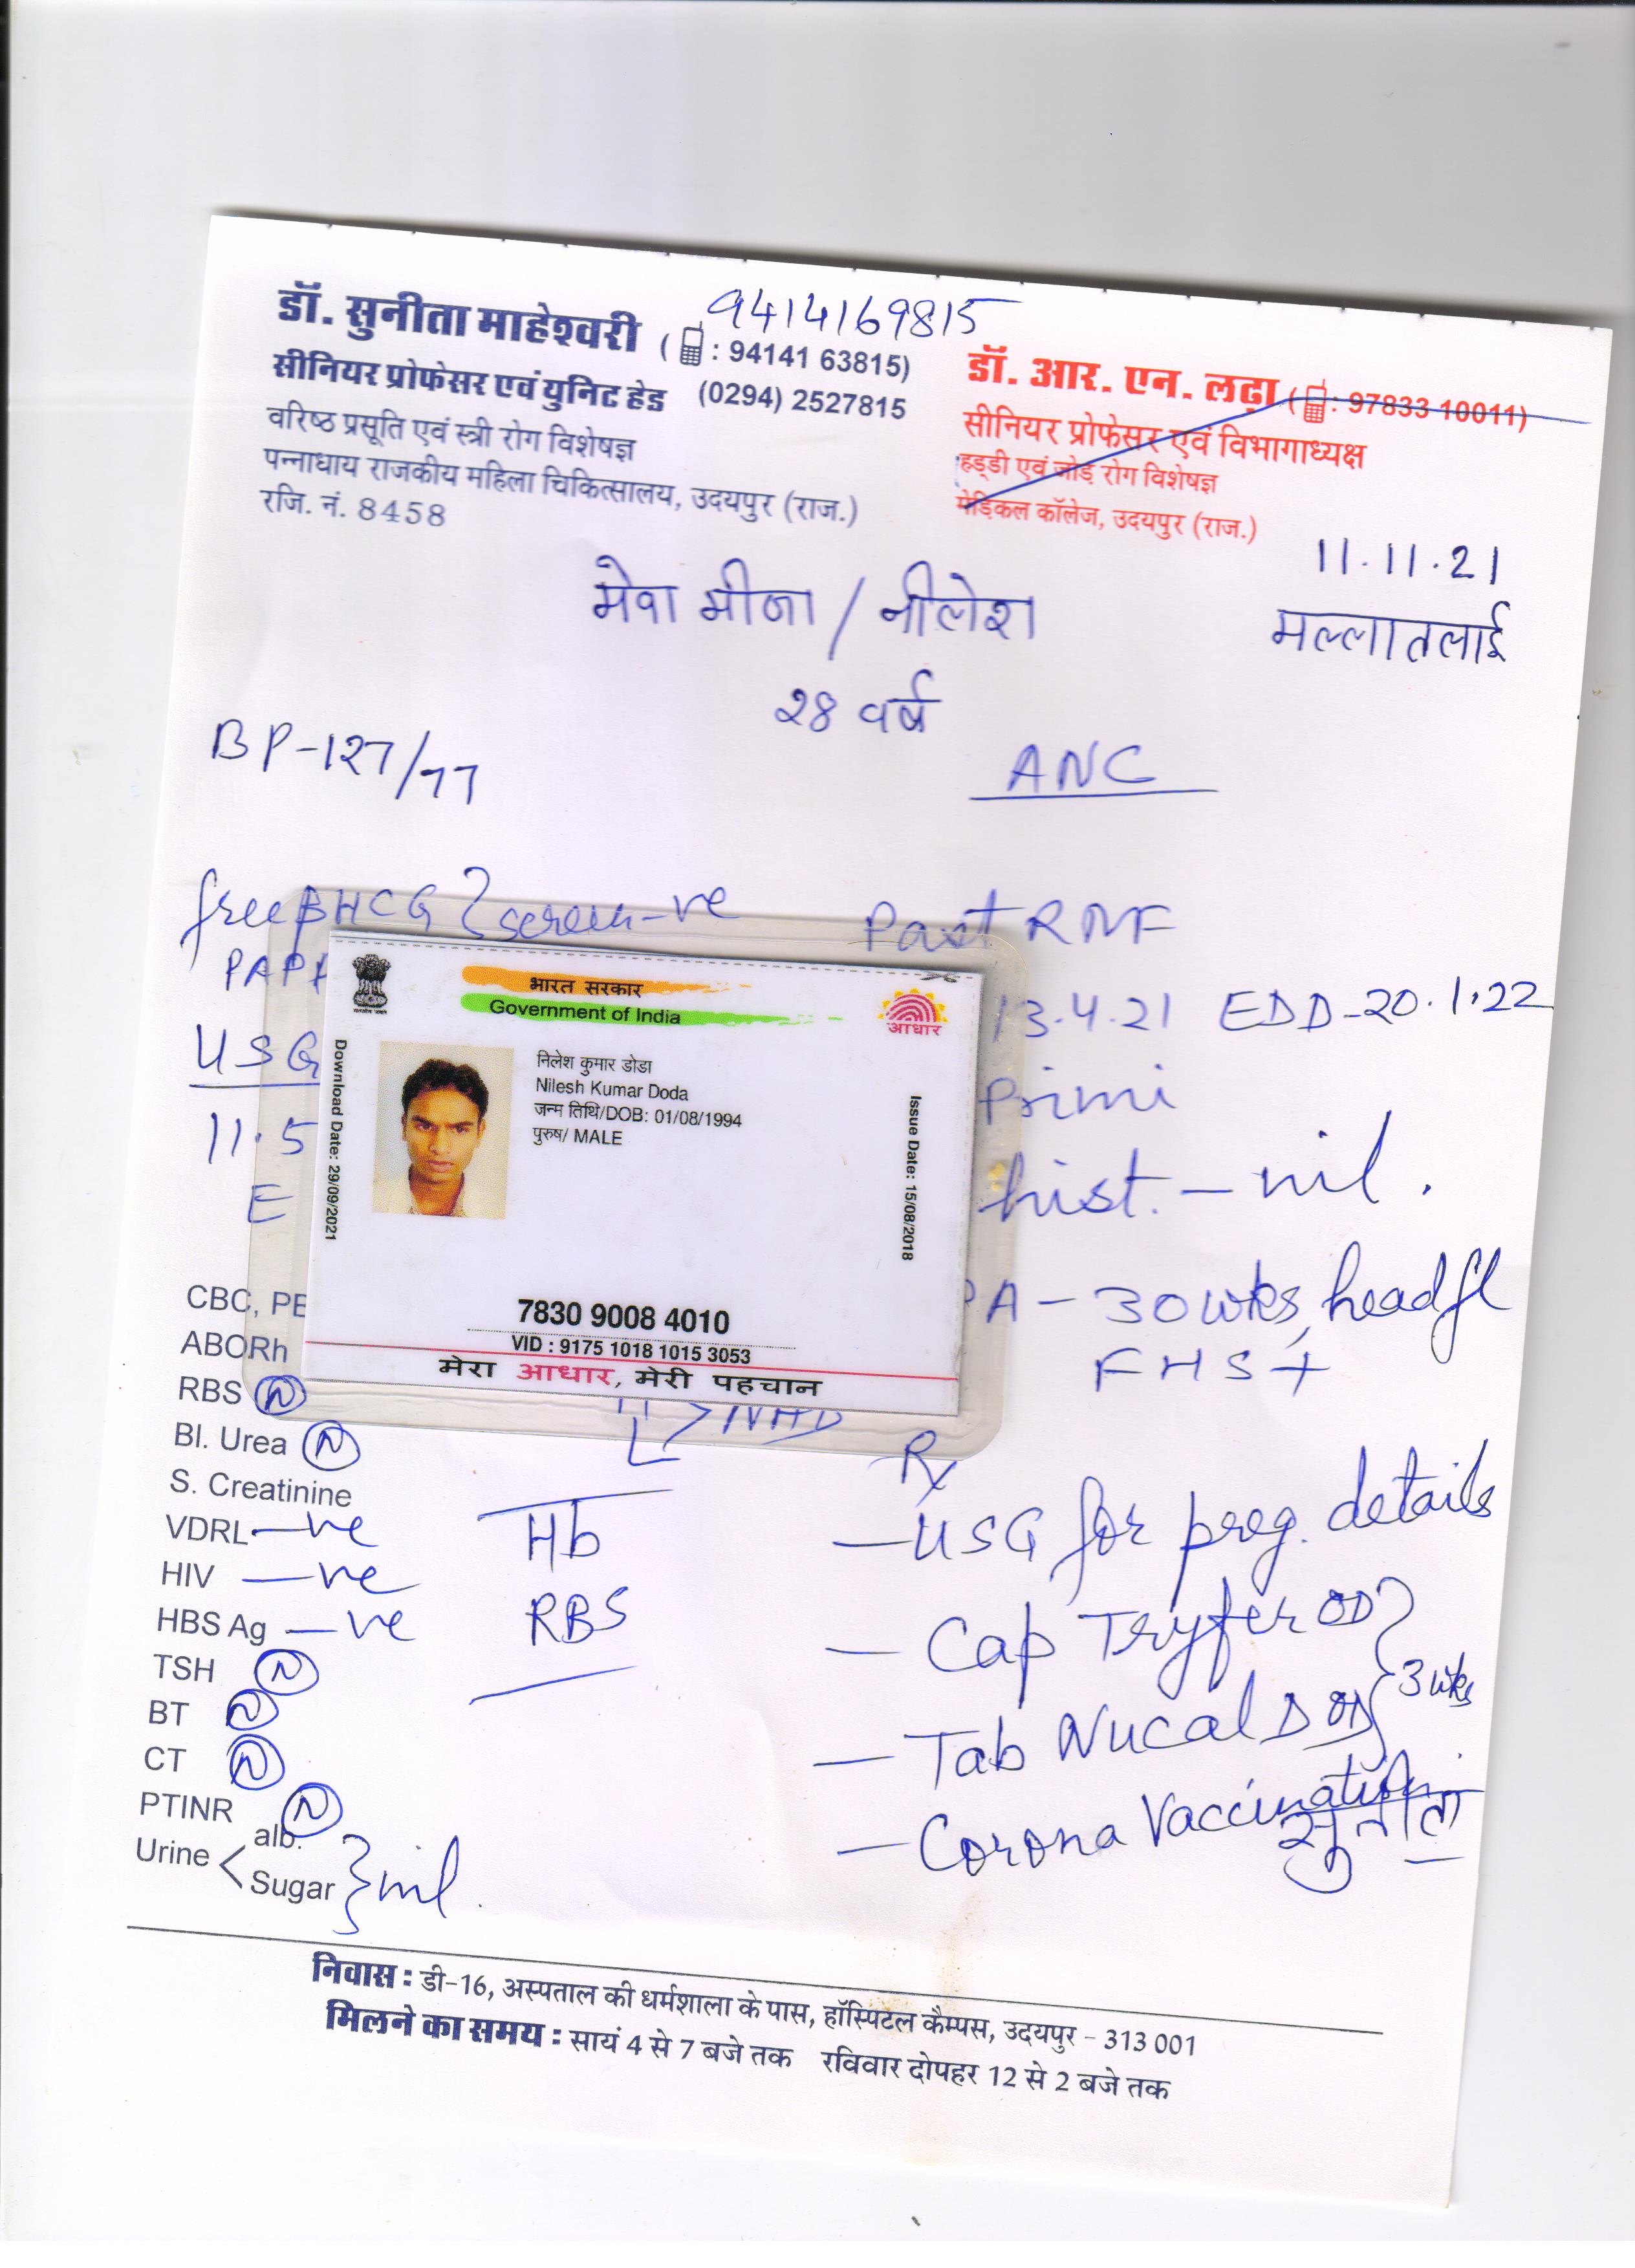 डॉ. सुनीता माहेश्वरी (: 94141 63815)
9414169815
सीनियर प्रोफेसर एवं युनिट हेड (0294) 2527815
वरिष्ठ प्रसूति एवं स्त्री रोग विशेषज्ञ
पन्नाधाय राजकीय महिला चिकित्सालय, उदयपुर (राज.)
रजि. नं. 8458
डॉ. आर. एन. लढ़ा (: 97833 10011)
सीनियर प्रोफेसर एवं विभागाध्यक्ष
हड्डी एवं जोड़ रोग विशेषज्ञ
मेडिकल कॉलेज, उदयपुर (राज.)
11.11.21
मेवा मीणा / नीलेश
मल्लातलाई
28 वर्ष
BP-127/77
ANC
free βHCG } screen -ve
PAPP
USG
11.5
E
Past RMF
13.4.21 EDD-20.1.22
Primi
hist. - nil.
PA - 30 wks, head fl
FHS +
भारत सरकार
Government of India
आधार
Download Date: 29/09/2021
निलेश कुमार डोडा
Nilesh Kumar Doda
जन्म तिथि/DOB: 01/08/1994
पुरुष/ MALE
Issue Date: 15/08/2018
7830 9008 4010
VID : 9175 1018 1015 3053
मेरा आधार, मेरी पहचान
CBC, PE
ABORh
RBS N
Bl. Urea N
S. Creatinine
VDRL -ve
HIV -ve
HBS Ag -ve
TSH N
BT N
CT N
PTINR N
Urine < alb. Sugar } nil.
Hb
RBS
Rx
- USG for preg. details
- Cap Tryfer OD
- Tab Nucal D OD } 3 wks
- Corona Vaccination
सुनीता
निवास : डी-16, अस्पताल की धर्मशाला के पास, हॉस्पिटल कैम्पस, उदयपुर - 313 001
मिलने का समय : सायं 4 से 7 बजे तक रविवार दोपहर 12 से 2 बजे तक